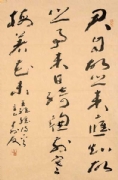 君自故鄉來應知故
鄉事來日綺窗前寒
梅著花未